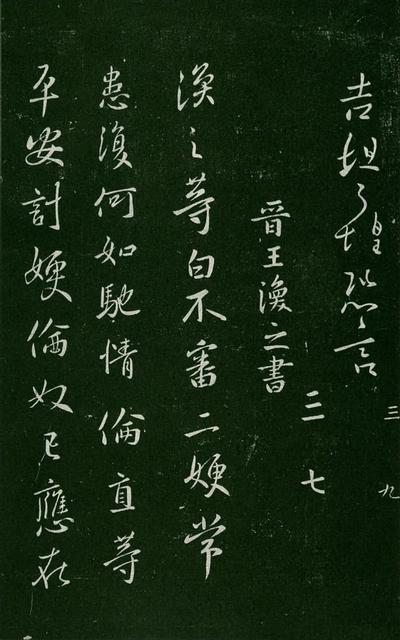 三九
吉坦之惶恐言
三七
晉王渙之書
渙之等白不審二嫂常
患復何如馳情倫直等
平安計嫂倫奴已應在